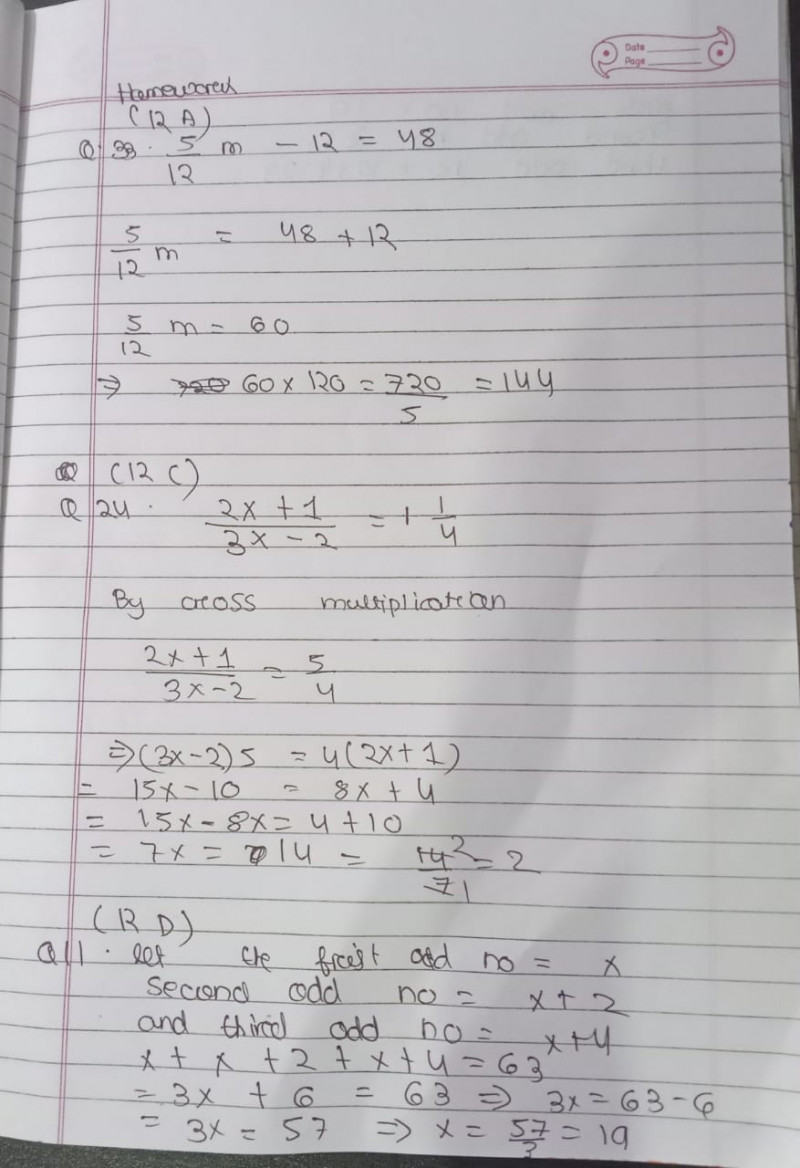 Date
Page
Homework
(12 A)
Q 38. 5/12 m - 12 = 48
5/12 m = 48 + 12
5/12 m = 60
⇒ 60 × 120 = 720/5 = 144
(12 C)
Q 24. (2x + 1)/(3x - 2) = 1 1/4
By cross multiplication
(2x + 1)/(3x - 2) = 5/4
⇒ (3x - 2) 5 = 4 (2x + 1)
= 15x - 10 = 8x + 4
= 15x - 8x = 4 + 10
= 7x = 14 = 14 2/7 1 = 2
(12 D)
Q 11. let the first odd no = x
second odd no = x + 2
and third odd no = x + 4
x + x + 2 + x + 4 = 63
= 3x + 6 = 63 ⇒ 3x = 63 - 6
= 3x = 57 ⇒ x = 57/3 = 19